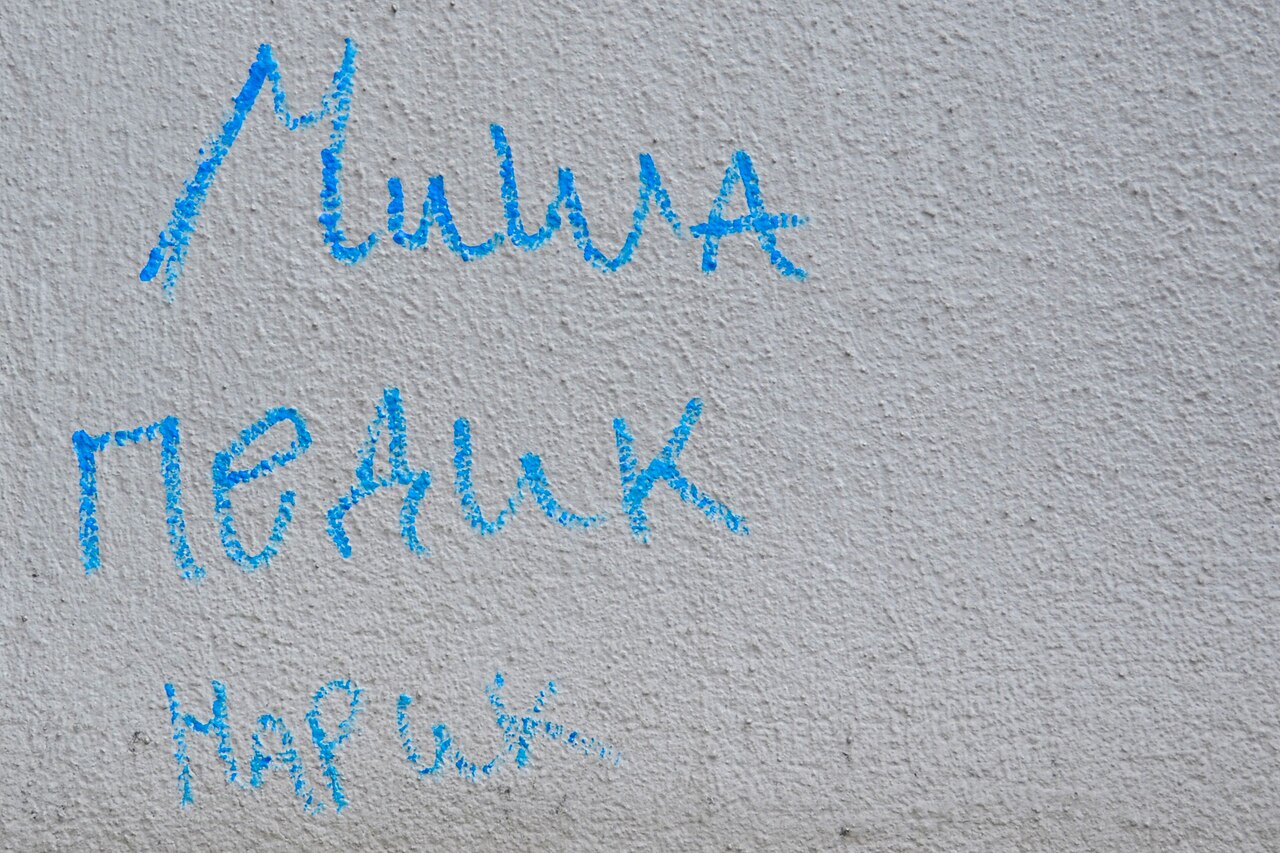 Миша
педик
нарик